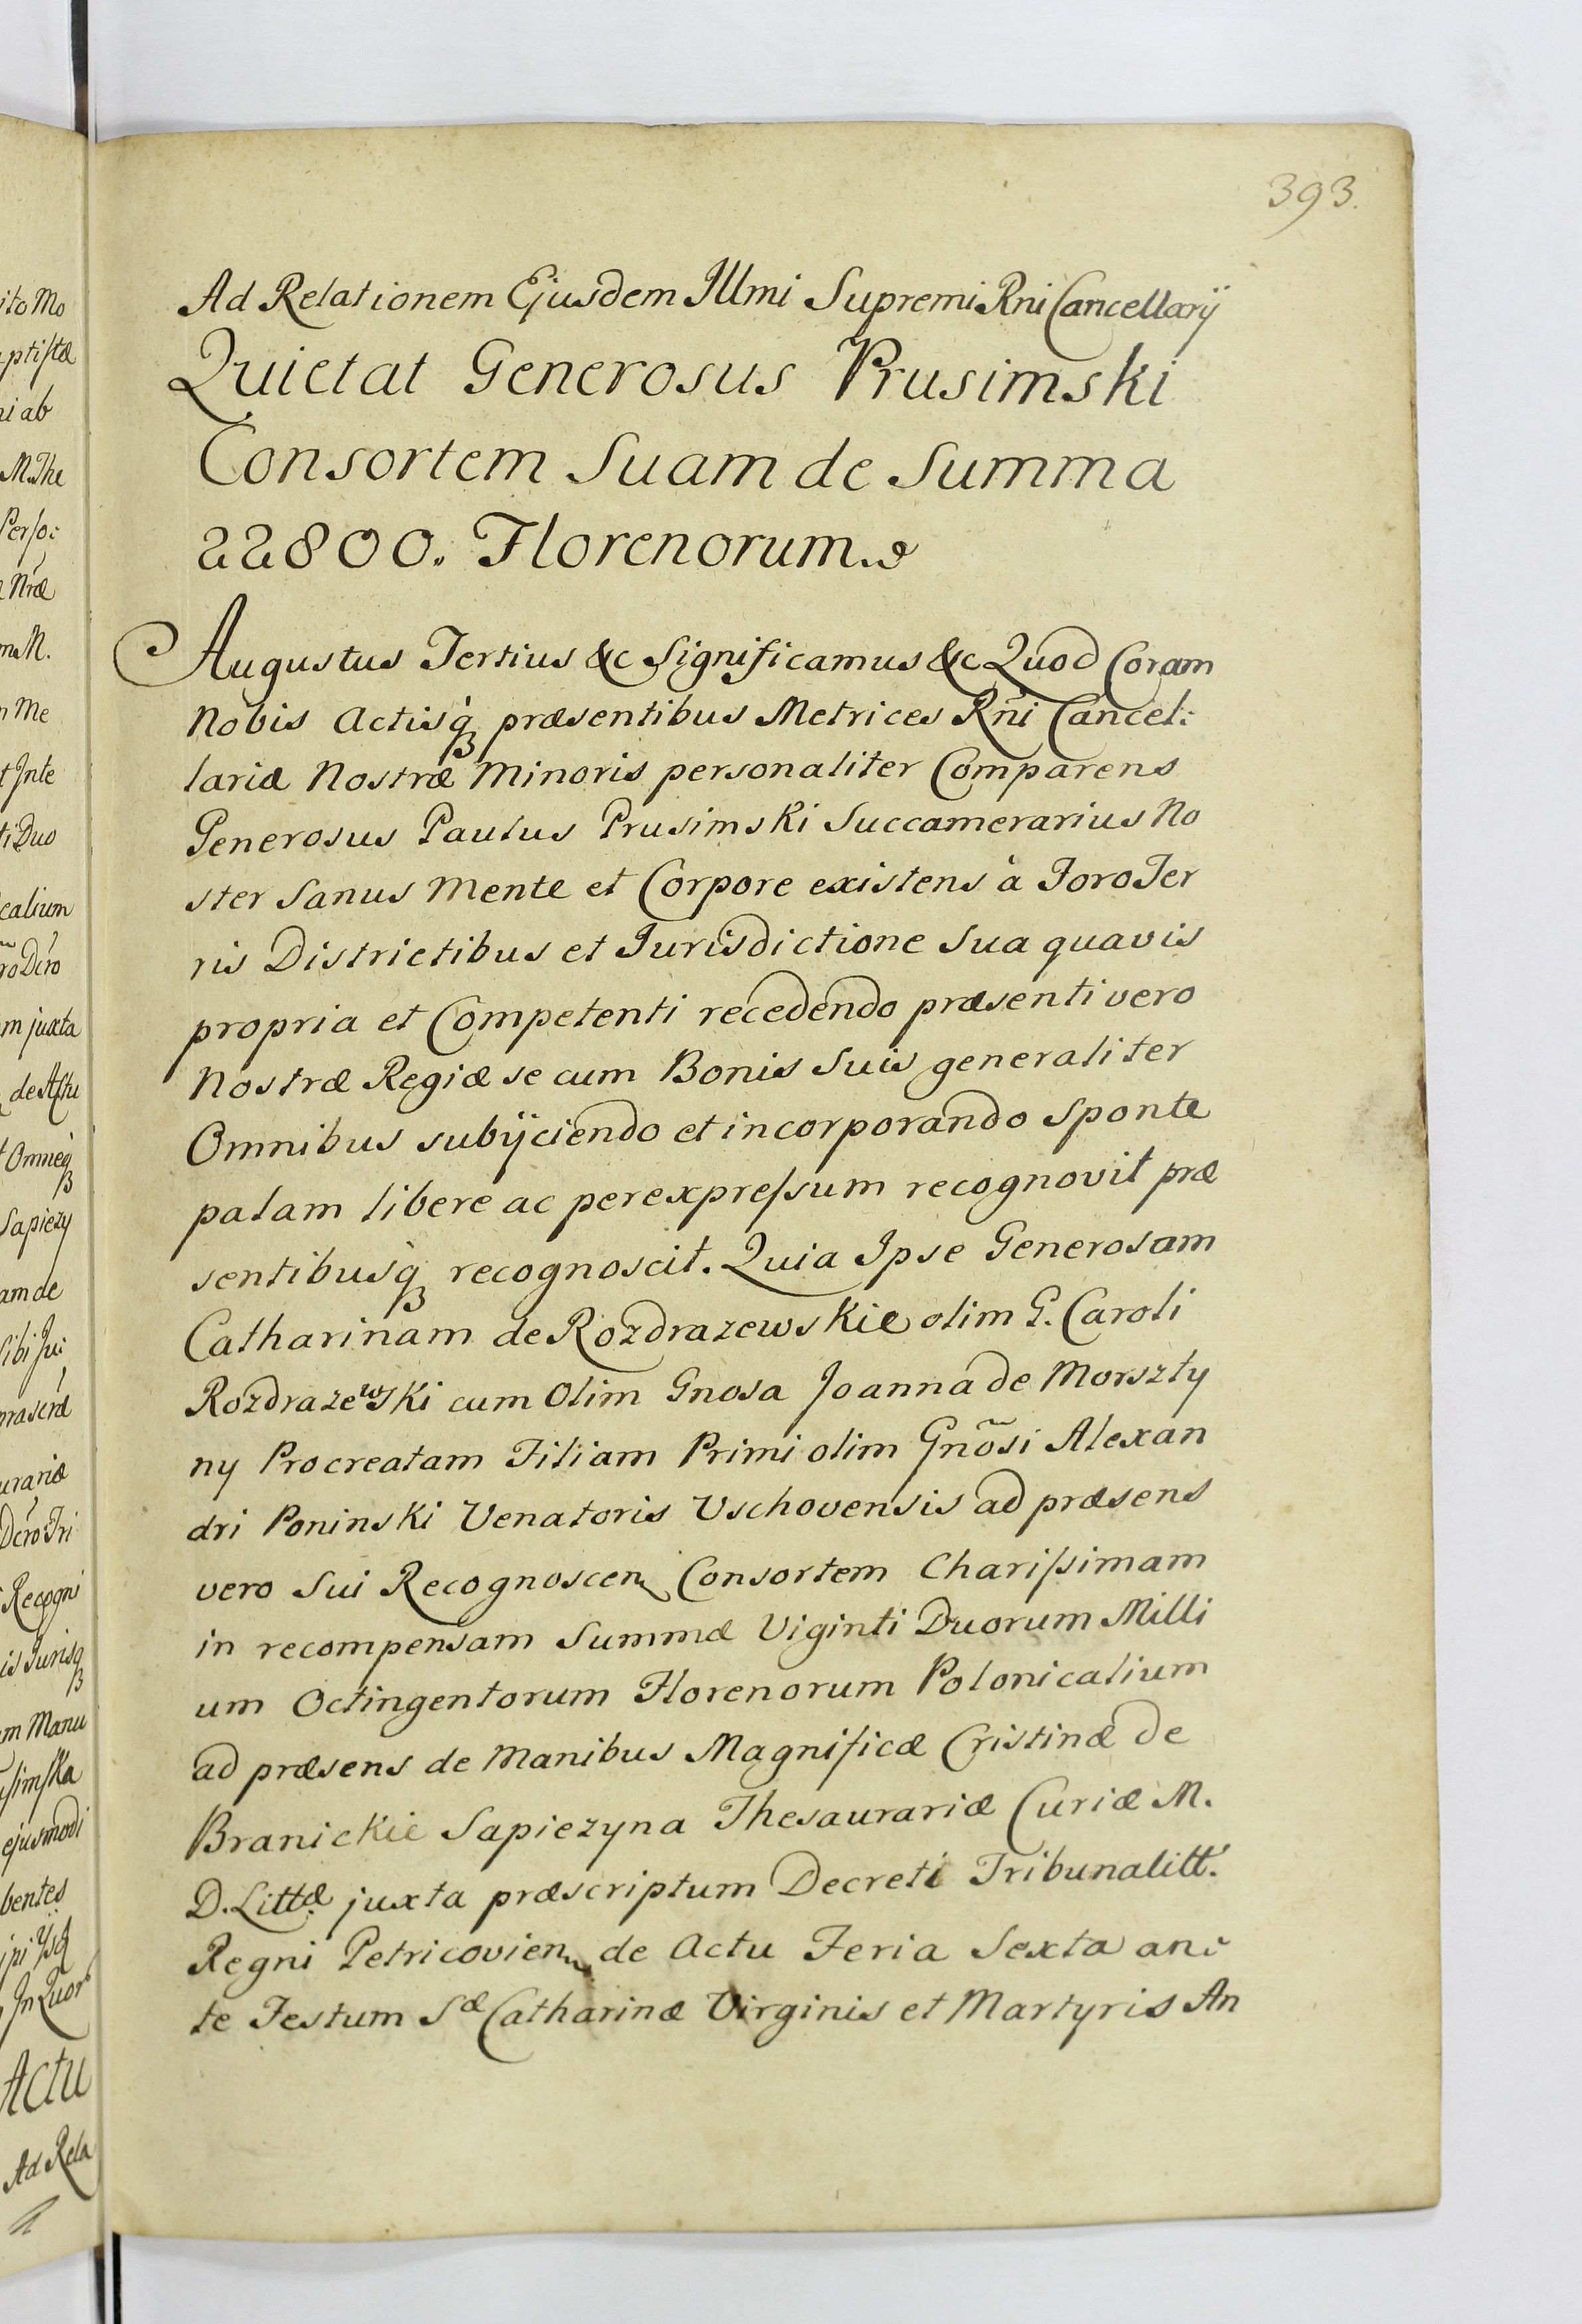 393.
Ad Relationem Ejusdem Illmi Supremi Rni Cancellarÿ
Quietat Generosus Prusimski
Consortem Suam de Summa
22800. Florenorum.
Augustus Tertius &c Significamus &c Quod Coram
Nobis Actisq̀ꝫ præsentibus Metrices Rñi Cancel:
lariæ Nostræ Minoris personaliter Comparens
Generosus Paulus Prusimski Succamerarius No
ster Sanus Mente et Corpore existens à Foro Ter
ris Districtibus et Jurisdictione Sua quavis
propria et Competenti recedendo præsenti vero
Nostræ Regiæ se cum Bonis Suis generaliter
Omnibus subÿciendo et incorporando Sponte
palam libere ac per expreſsum recognovit præ
sentibusq̀ꝫ recognoscit. Quia Ipse Generosam
Catharinam de Rozdrazewskie olim G. Caroli
Rozdrazewski cum Olim Gnosa Joanna de Morszty
ny Procreatam Filiam Primi olim Gnõsi Alexan
dri Poninski Venatoris Vschovensis ad præsens
vero Sui Recognoscen Consortem Chariſsimam
in recompensam Summæ Viginti Duorum Milli
um Octingentorum Florenorum Polonicalium
ad præsens de Manibus Magnificæ Cristinæ de
Branickie Sapiezyna Thesaurariæ Curiæ M.
D. Littæ: juxta præscriptum Decreti Tribunalitt:
Regni Petricovien de Actu Feria Sexta an:
te Festum Sæ Catharinæ Virginis et Martyris An
ito Mo
ptiſtæ
ni ab
M. The
Perſo:
Nræ
ma M.
n Me
t Inte
ti Duo
calium
ro Dcro
m juxta
t Omneq̀ꝫ
Sapiezy
am de
urariæ
Recogni
is Jurisqꝫ
m Manu
usimſka
ejusmodi
bentes
Actu
Ad Rela